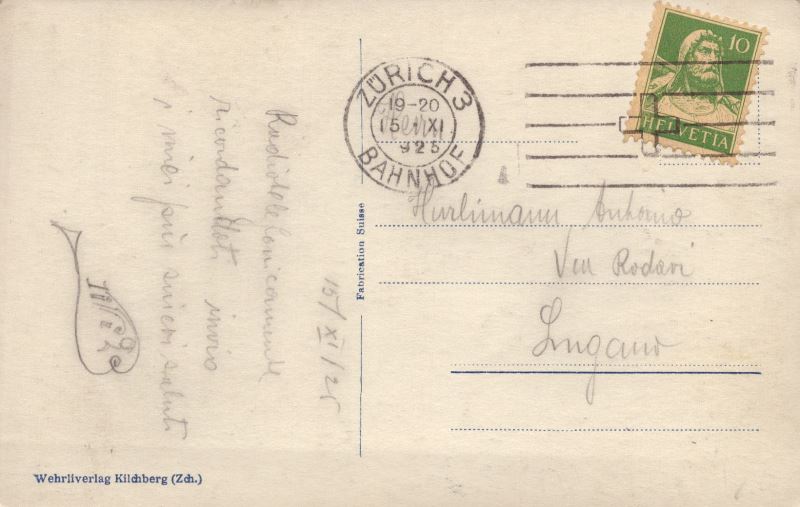 15/XI/25
Radiotelefonicamente
ricordandoti invio
i miei più sinceri saluti
Fabrication Suisse
ZÜRICH 3
19-20
15 XI
925
BAHNHOF
10
HELVETIA
Hurlimann Antonio
Via Rodari
Lugano
Wehrliverlag Kilchberg (Zch.)